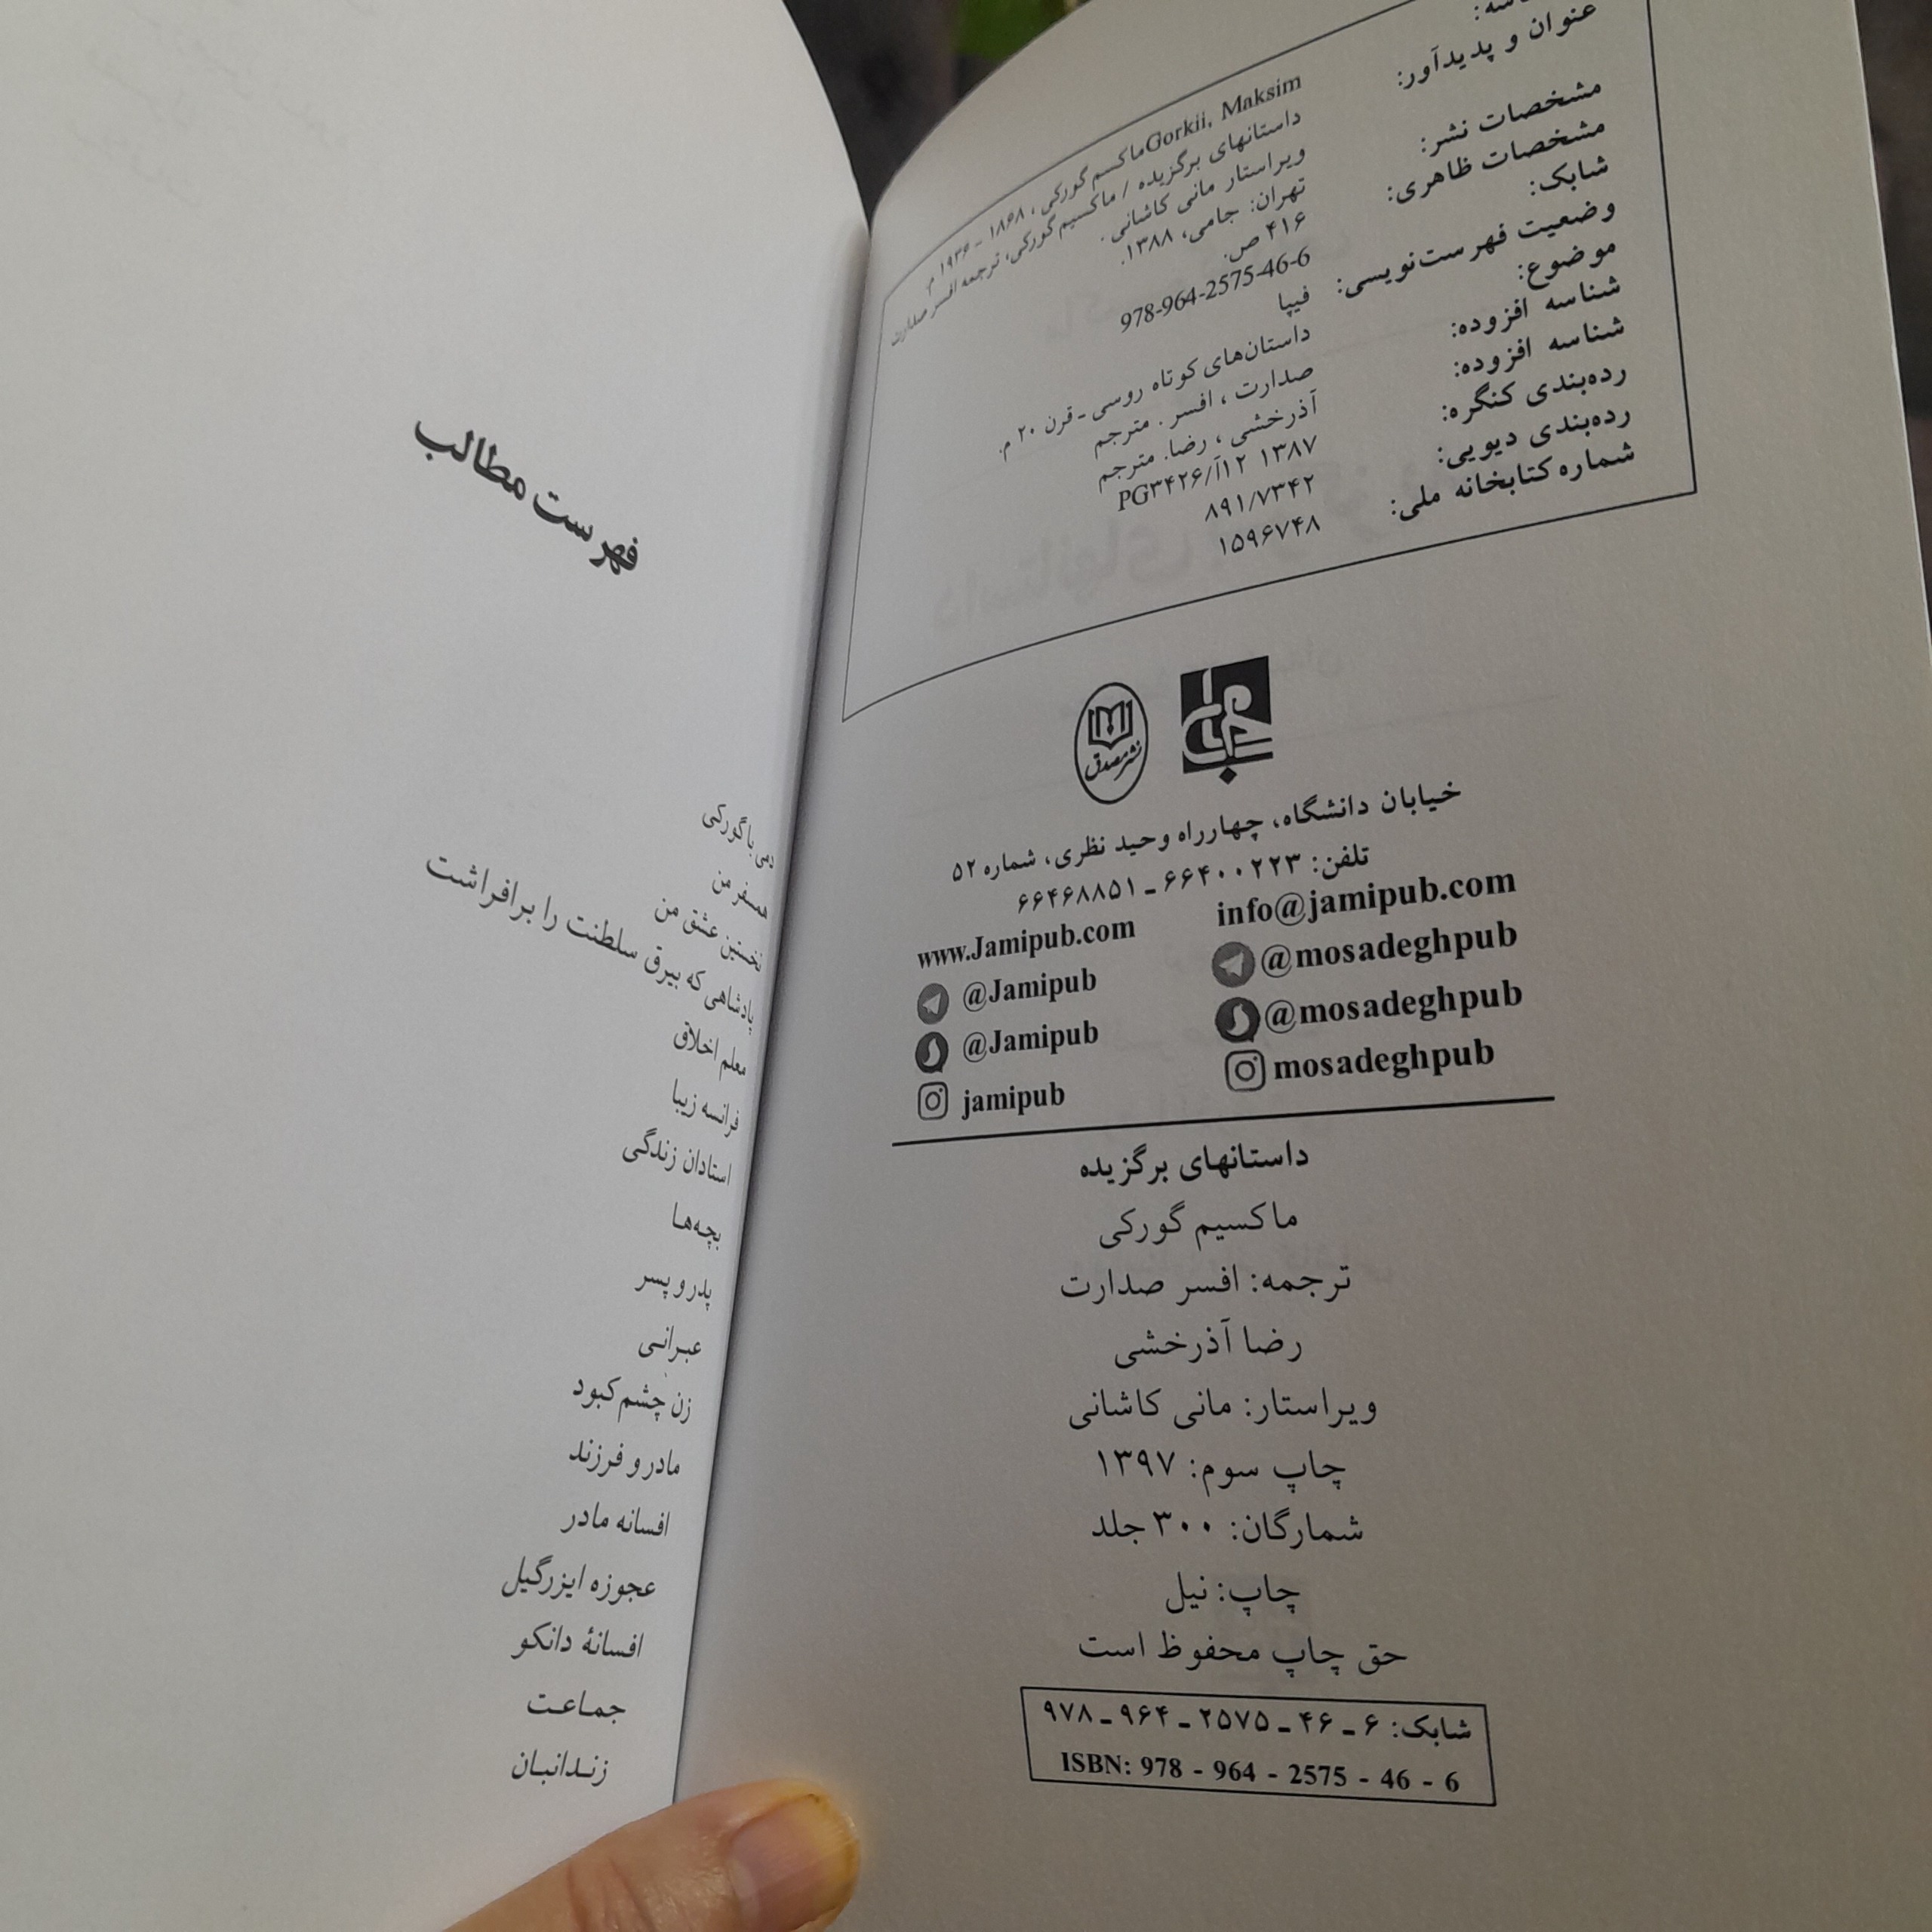 عنوان و پدیدآور:
مشخصات نشر:
مشخصات ظاهری:
شابک:
وضعیت فهرست‌نویسی:
موضوع:
شناسه افزوده:
شناسه افزوده:
رده‌بندی کنگره:
رده‌بندی دیویی:
شماره کتابخانه ملی:
ماکسیم گورکی، ۱۸۶۸ - ۱۹۳۶ م. Gorkii, Maksim
داستانهای برگزیده / ماکسیم گورکی، ترجمه افسر صدارت
ویراستار مانی کاشانی.
تهران: جامی، ۱۳۸۸.
۴۱۶ ص.
978-964-2575-46-6
فیپا
داستان‌های کوتاه روسی - قرن ۲۰ م.
صدارت، افسر. مترجم
آذرخشی، رضا. مترجم
PG۳۴۲۶/آ۱۲ ۱۳۸۷
۸۹۱/۷۳۴۲
۱۵۹۶۷۴۸
جامی
نشر مصدق
خیابان دانشگاه، چهارراه وحید نظری، شماره ۵۲
تلفن: ۶۶۴۰۰۲۲۳ ـ ۶۶۴۶۸۸۵۱
info@jamipub.com
www.Jamipub.com
@mosadeghpub
@Jamipub
@mosadeghpub
@Jamipub
mosadeghpub
jamipub
داستانهای برگزیده
ماکسیم گورکی
ترجمه: افسر صدارت
رضا آذرخشی
ویراستار: مانی کاشانی
چاپ سوم: ۱۳۹۷
شمارگان: ۳۰۰ جلد
چاپ: نیل
حق چاپ محفوظ است
شابک: ۶ ـ ۴۶ ـ ۲۵۷۵ ـ ۹۶۴ ـ ۹۷۸
ISBN: 978 - 964 - 2575 - 46 - 6
فهرست مطالب
دمی با گورکی
همسفر من
نخستین عشق من
پادشاهی که بیرق سلطنت را برافراشت
معلم اخلاق
فرانسه زیبا
استادان زندگی
بچه‌ها
پدر و پسر
عبرانی
زن چشم کبود
مادر و فرزند
افسانه مادر
عجوزه ایزرگیل
افسانهٔ دانکو
جماعت
زندانبان